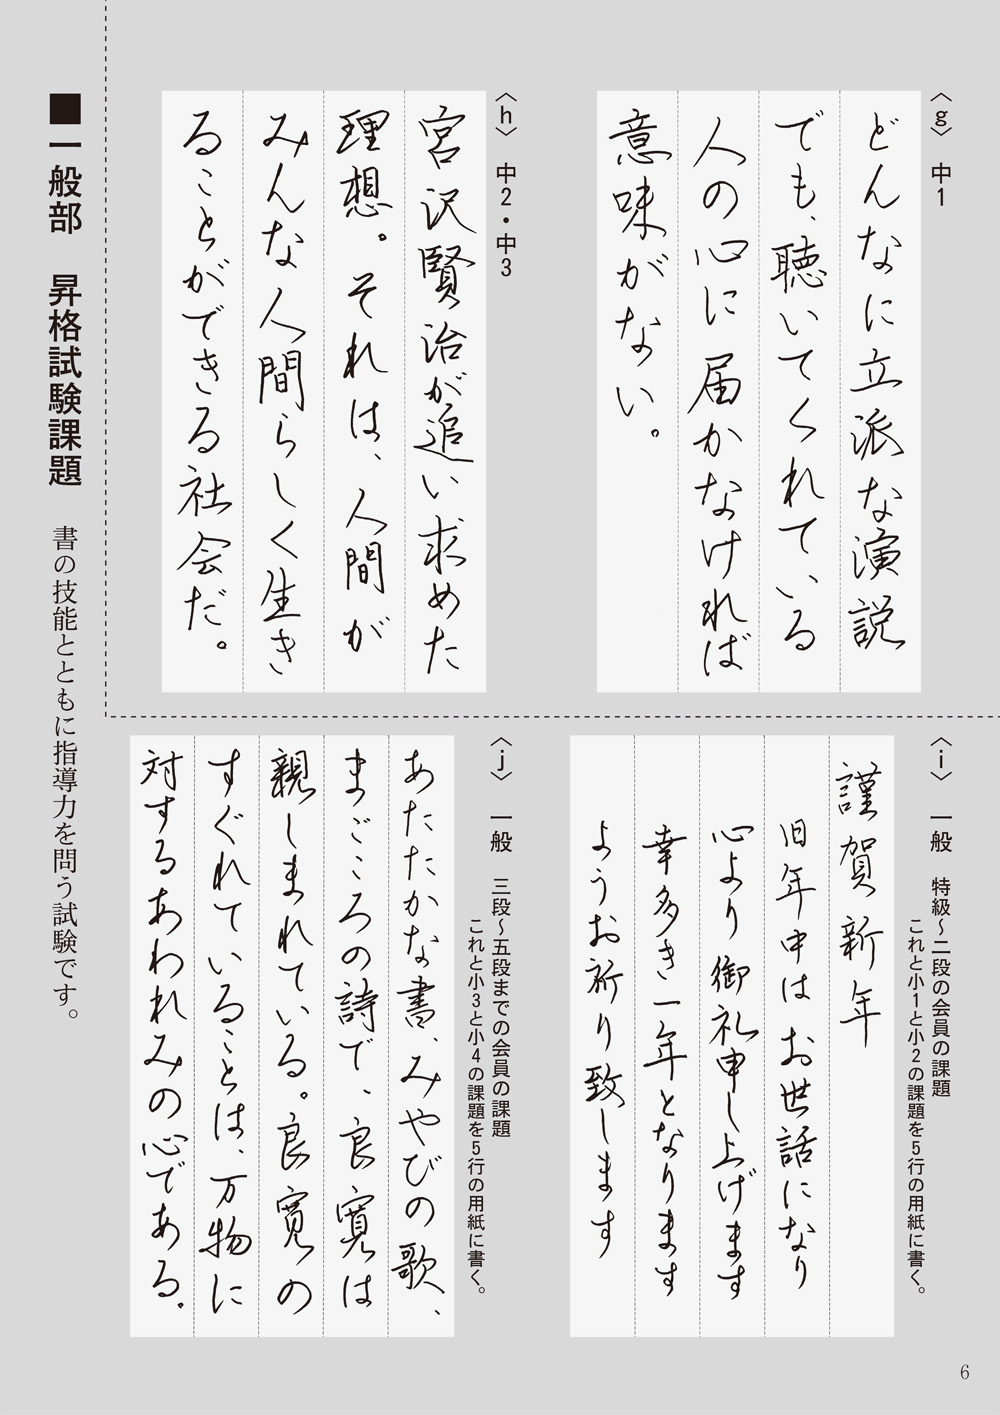 〈g〉 中1
どんなに立派な演説
でも、聴いてくれている
人の心に届かなければ
意味がない。
〈h〉 中2・中3
宮沢賢治が追い求めた
理想。それは、人間が
みんな人間らしく生き
ることができる社会だ。
■一般部 昇格試験課題 書の技能とともに指導力を問う試験です。
〈i〉 一般 特級〜二段の会員の課題
これと小1と小2の課題を5行の用紙に書く。
謹賀新年
旧年中は お世話になり
心より 御礼申し上げます
幸多き一年となります
ようお祈り致します
〈j〉 一般 三段〜五段までの会員の課題
これと小3と小4の課題を5行の用紙に書く。
あたたかな書、みやびの歌、
まごころの詩で、良寛は
親しまれている。良寛の
すぐれていることは、万物に
対するあわれみの心である。
6